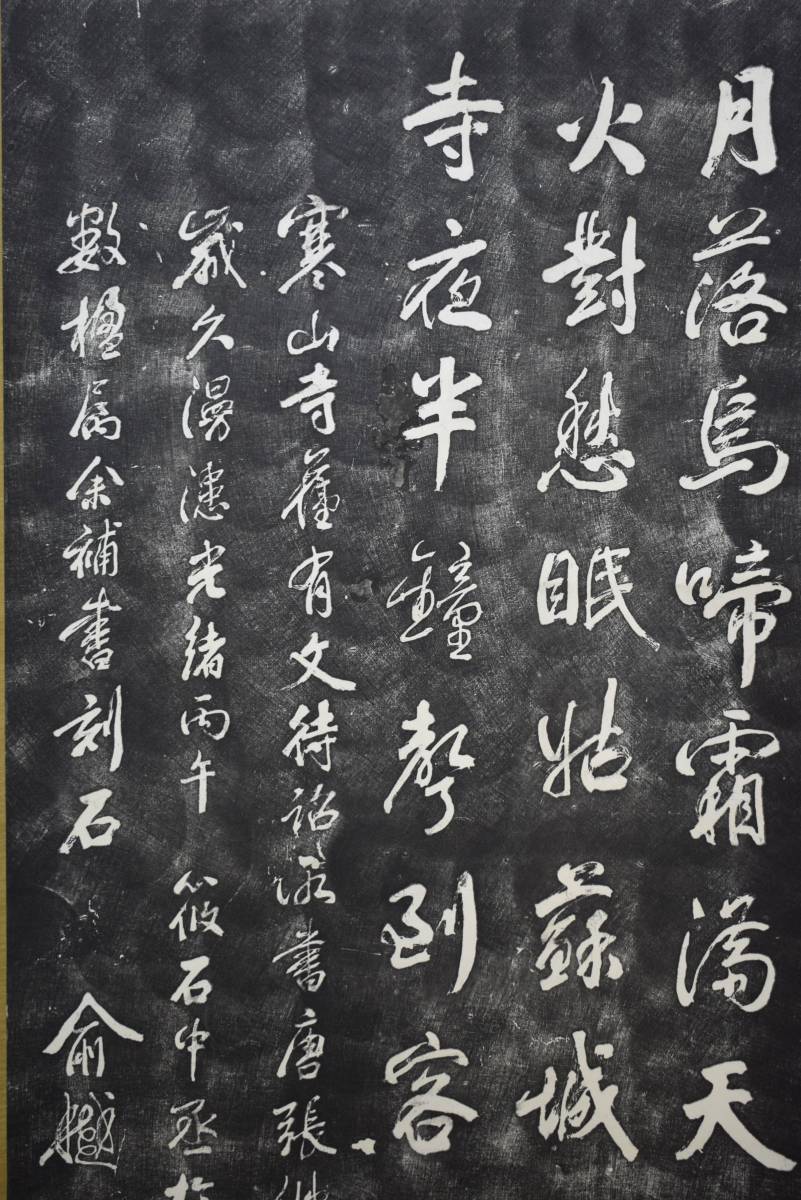 月落烏啼霜滿天
火對愁眠姑蘇城
寺夜半鐘聲到客
寒山寺舊有文待詔所書唐張
歲久漫漶光緒丙午筱石中丞於
數楹屬余補書刻石 俞樾